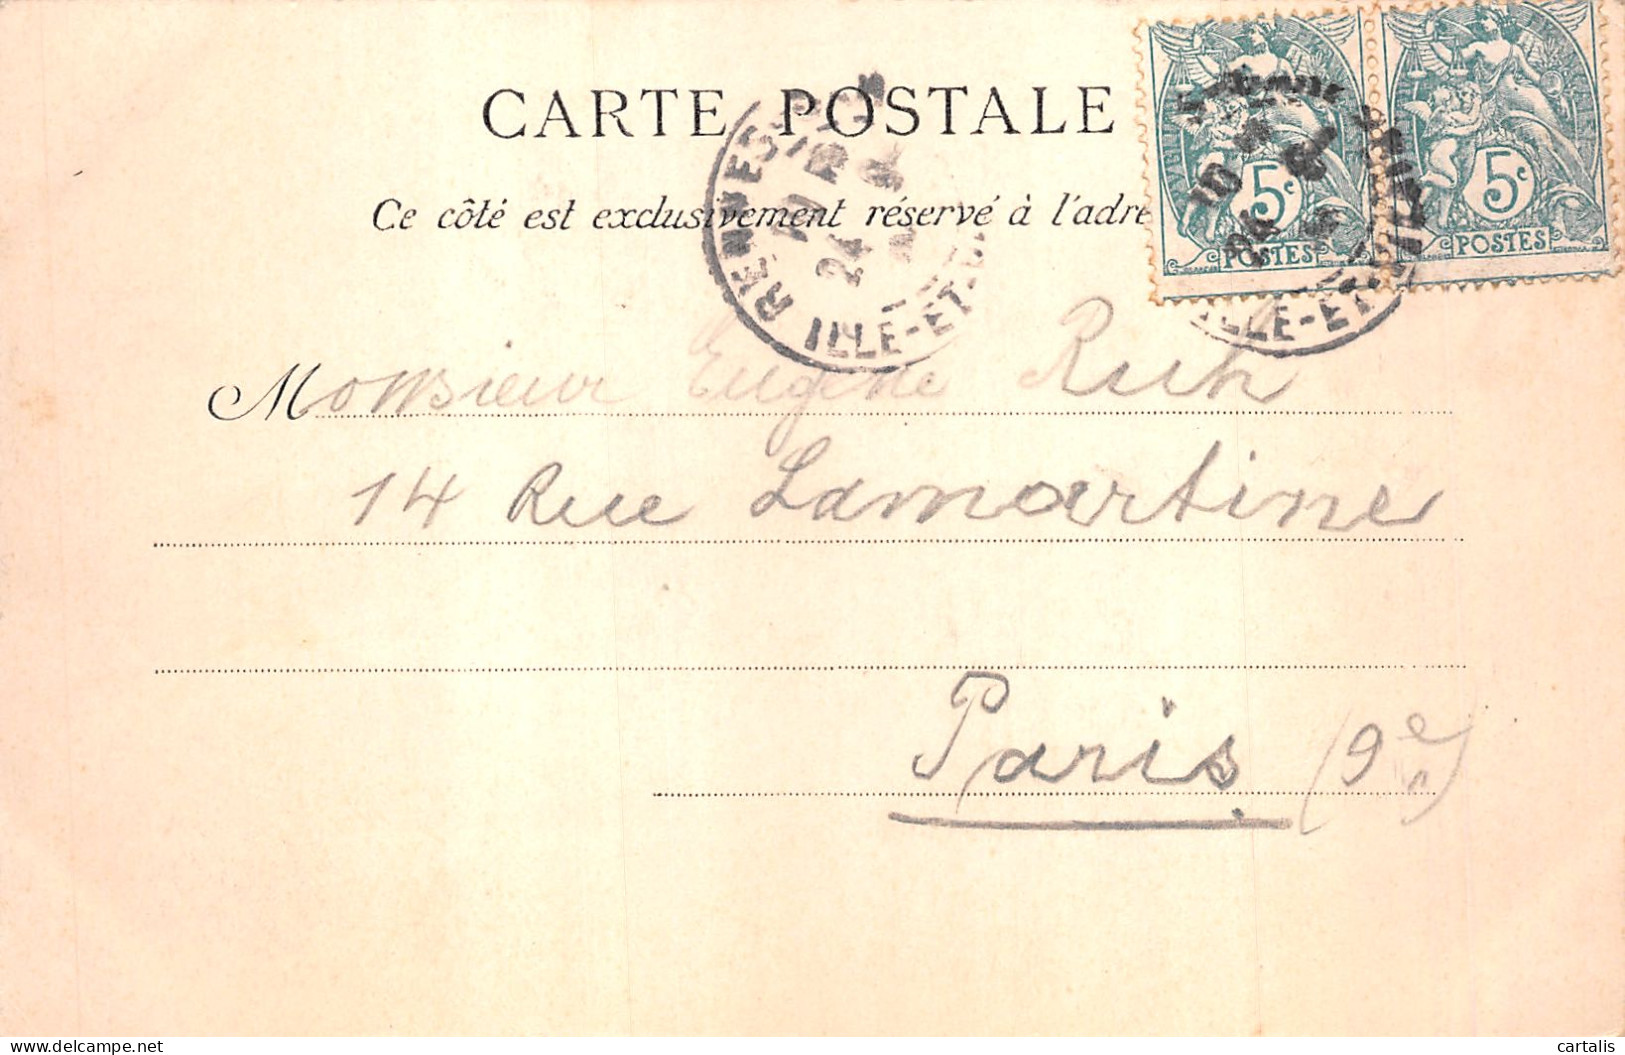 CARTE POSTALE
Ce côté est exclusivement réservé à l'adre
5c
POSTES
5c
POSTES
RENNES
24
ILLE-ET-
24
ILLE-ET-
Monsieur Eugène Ruh
14 Rue Lamartine
Paris (9e)
cartalis
delcampe.net